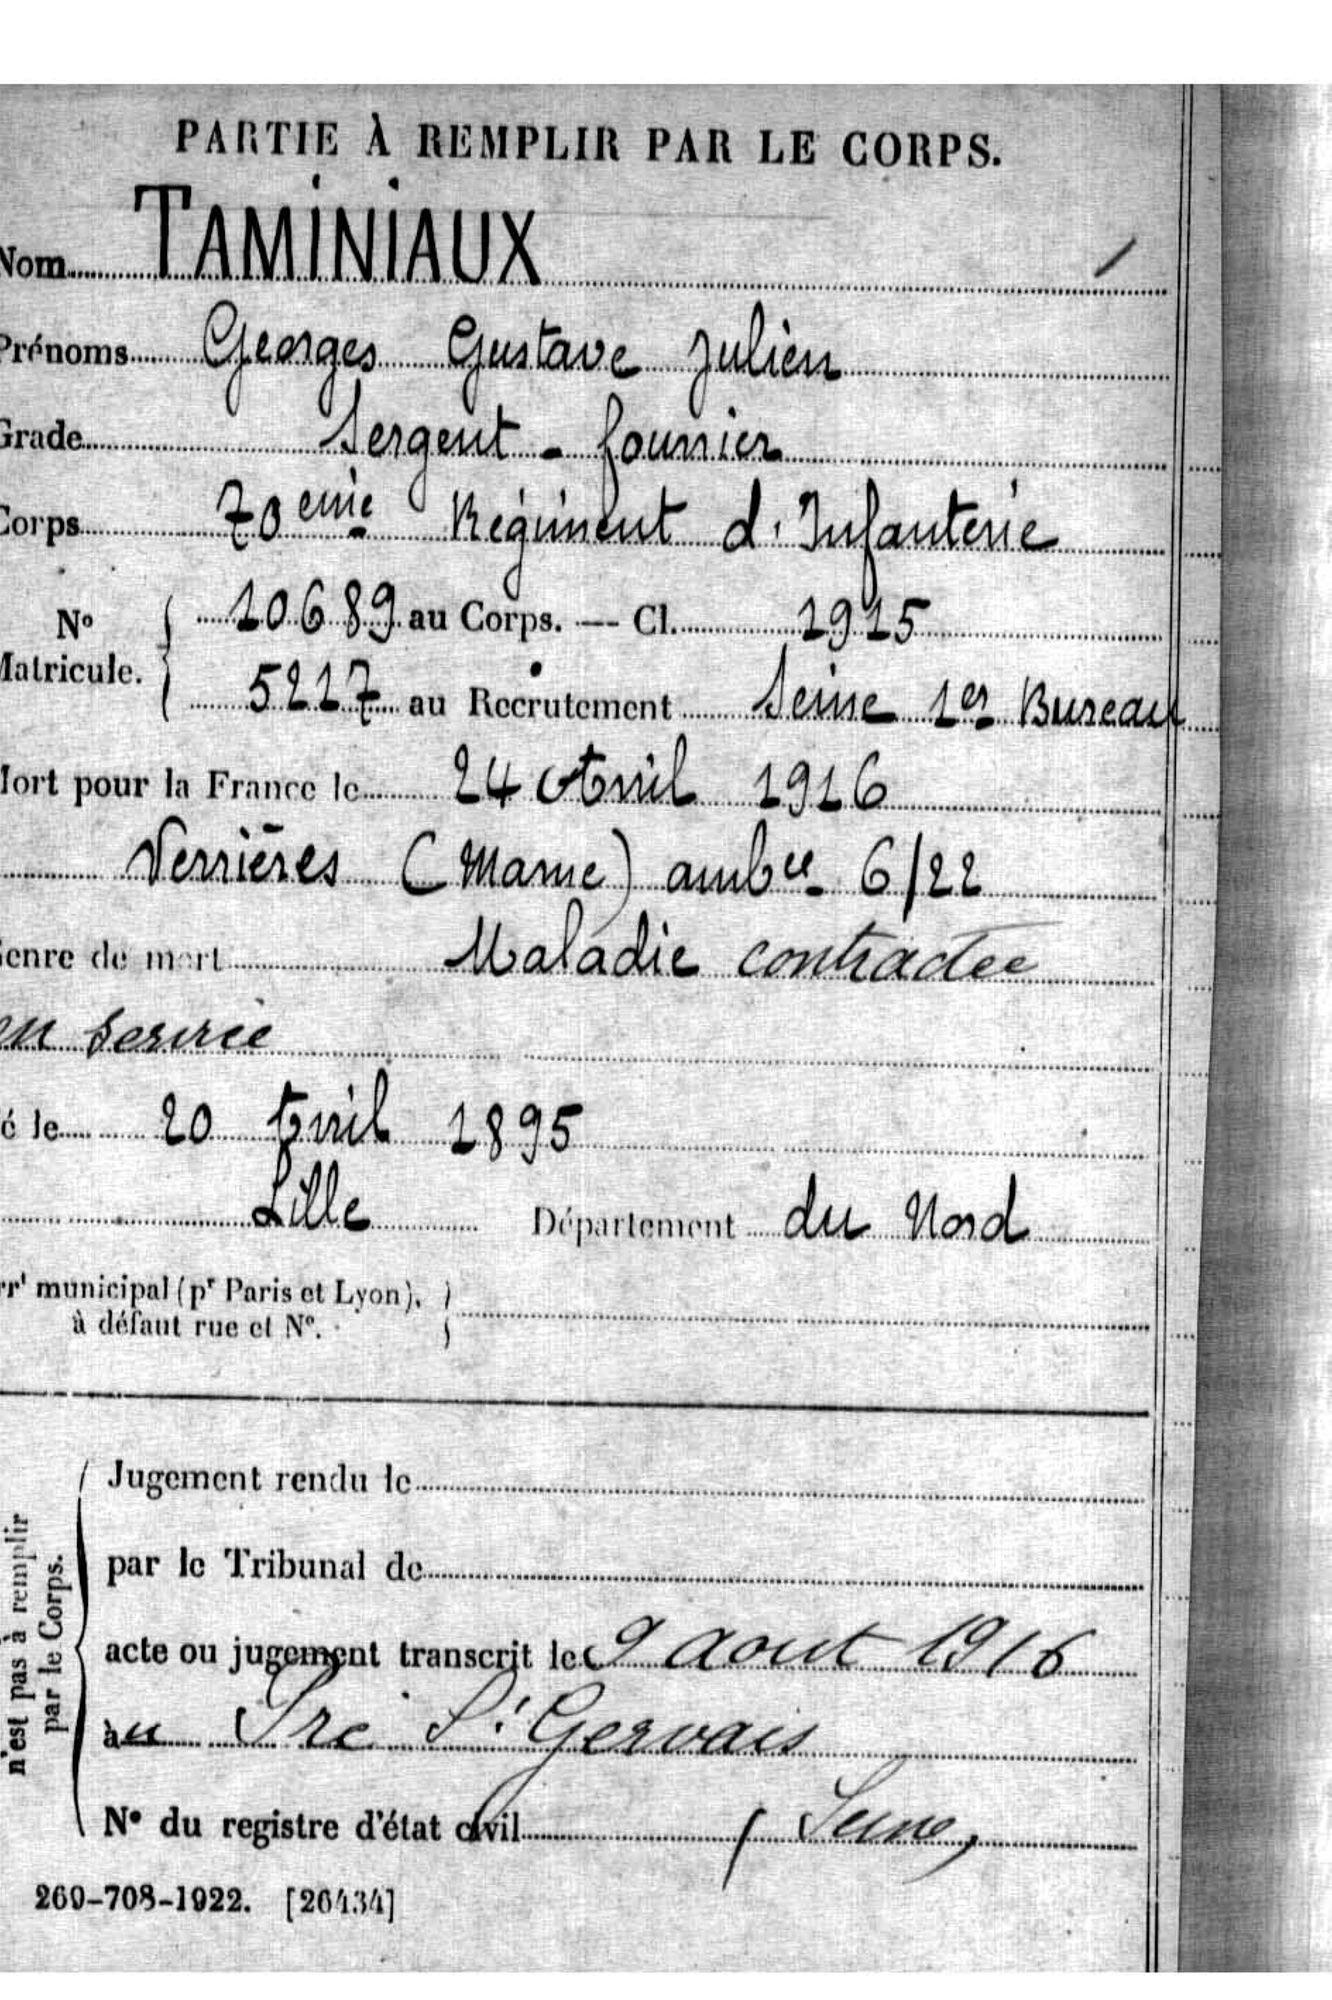 PARTIE À REMPLIR PAR LE CORPS.
Nom TAMINIAUX
Prénoms Georges Gustave Julien
Grade Sergent - fourrier
Corps 70eme Régiment d'Infanterie
No Matricule. 10689 au Corps. — Cl. 1915
5217 au Recrutement Seine 1er Bureau
Mort pour la France le 24 Avril 1916
Verrières (Marne) ambce 6/22
Genre de mort Maladie contractée
en service
é le 20 Avril 1895
Lille Département du Nord
rrt municipal (pr Paris et Lyon),
à défaut rue et No.
Jugement rendu le
par le Tribunal de
acte ou jugement transcrit le 9 aout 1916
au Pré St Gervais
No du registre d'état civil (Seine)
n'est pas à remplir
par le Corps.
269-708-1922. [26434]